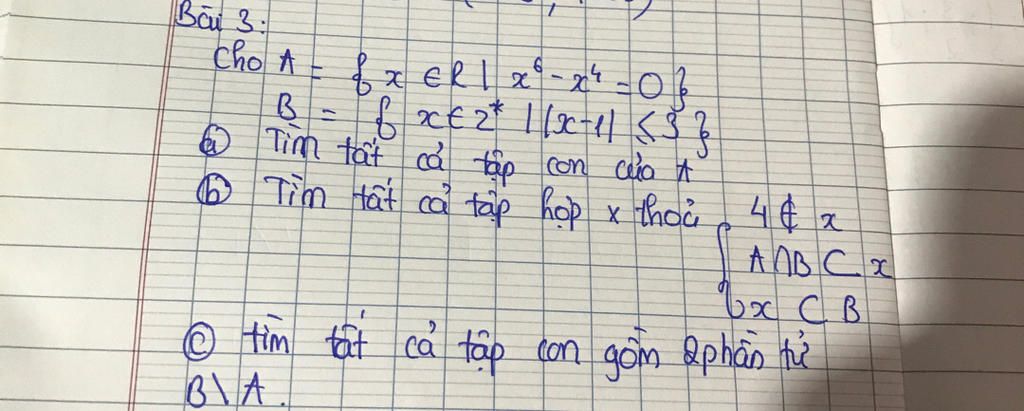 Bài 3:
Cho A = { x ∈ R | x⁶ - x⁴ = 0 }
B = { x ∈ Z* | |x-1| ≤ 3 }
ⓐ Tìm tất cả tập con của A
ⓑ Tìm tất cả tập hợp x thoả { 4 ∉ x
A∩B ⊂ x
x ⊂ B
ⓒ tìm tất cả tập con gồm 2 phần tử
B\A.